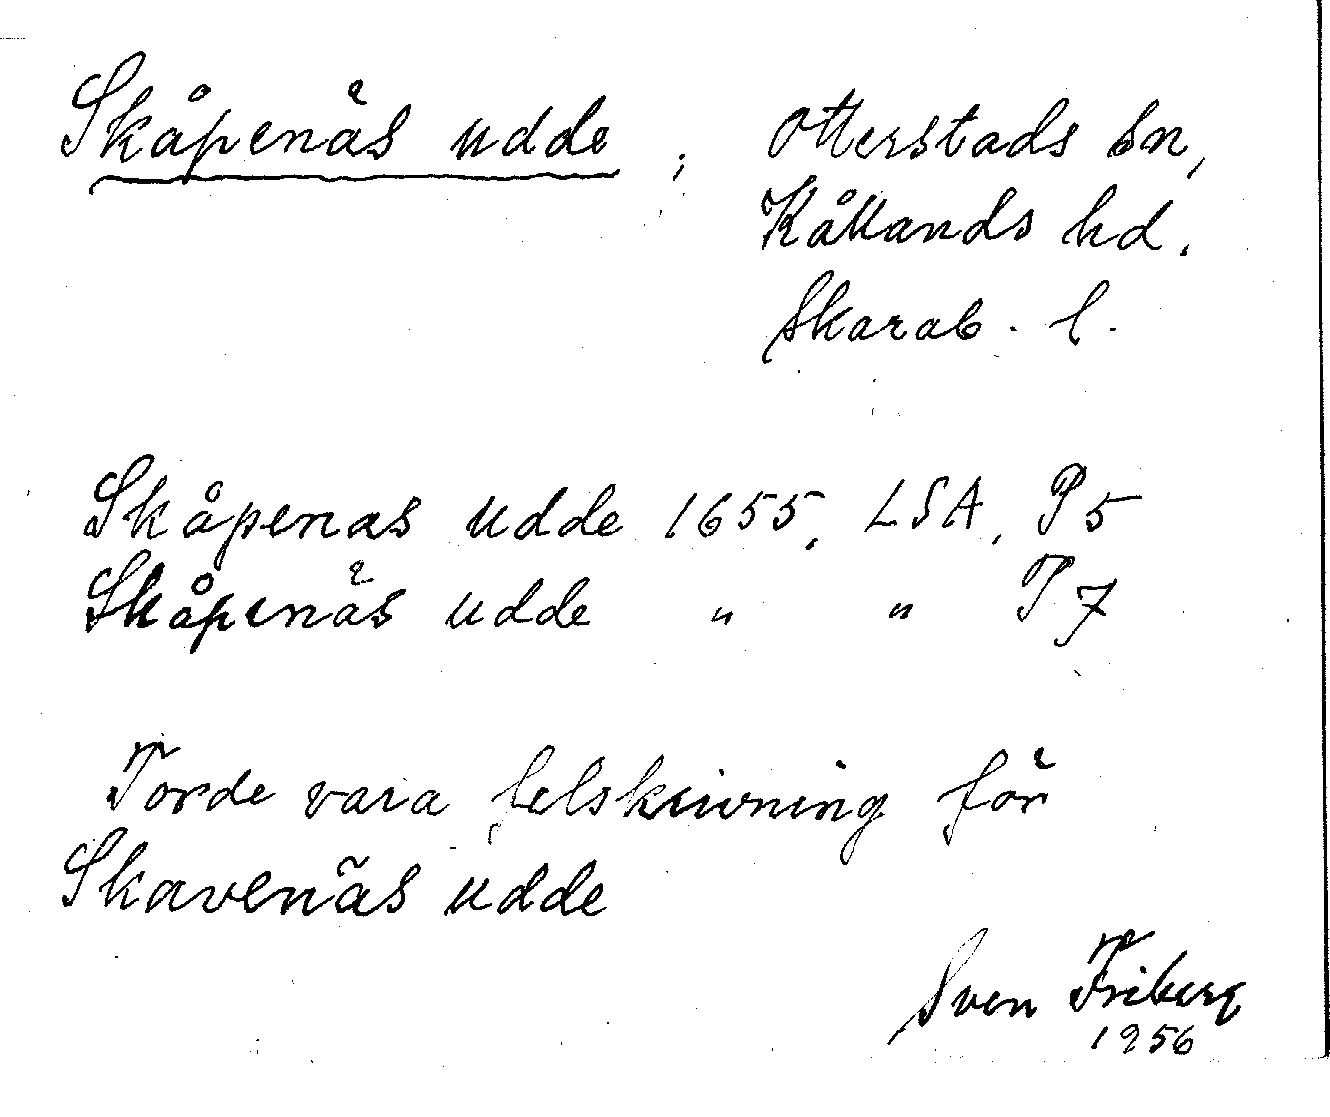 Skåpenäs udde ; Otterstads sn,
Kållands hd.
Skarab. l.
Skåpenas udde 1655, LSA, P5
Skåpenäs udde " " P7
Torde vara felskrivning för
Skavenäs udde
Sven Friberg
1956